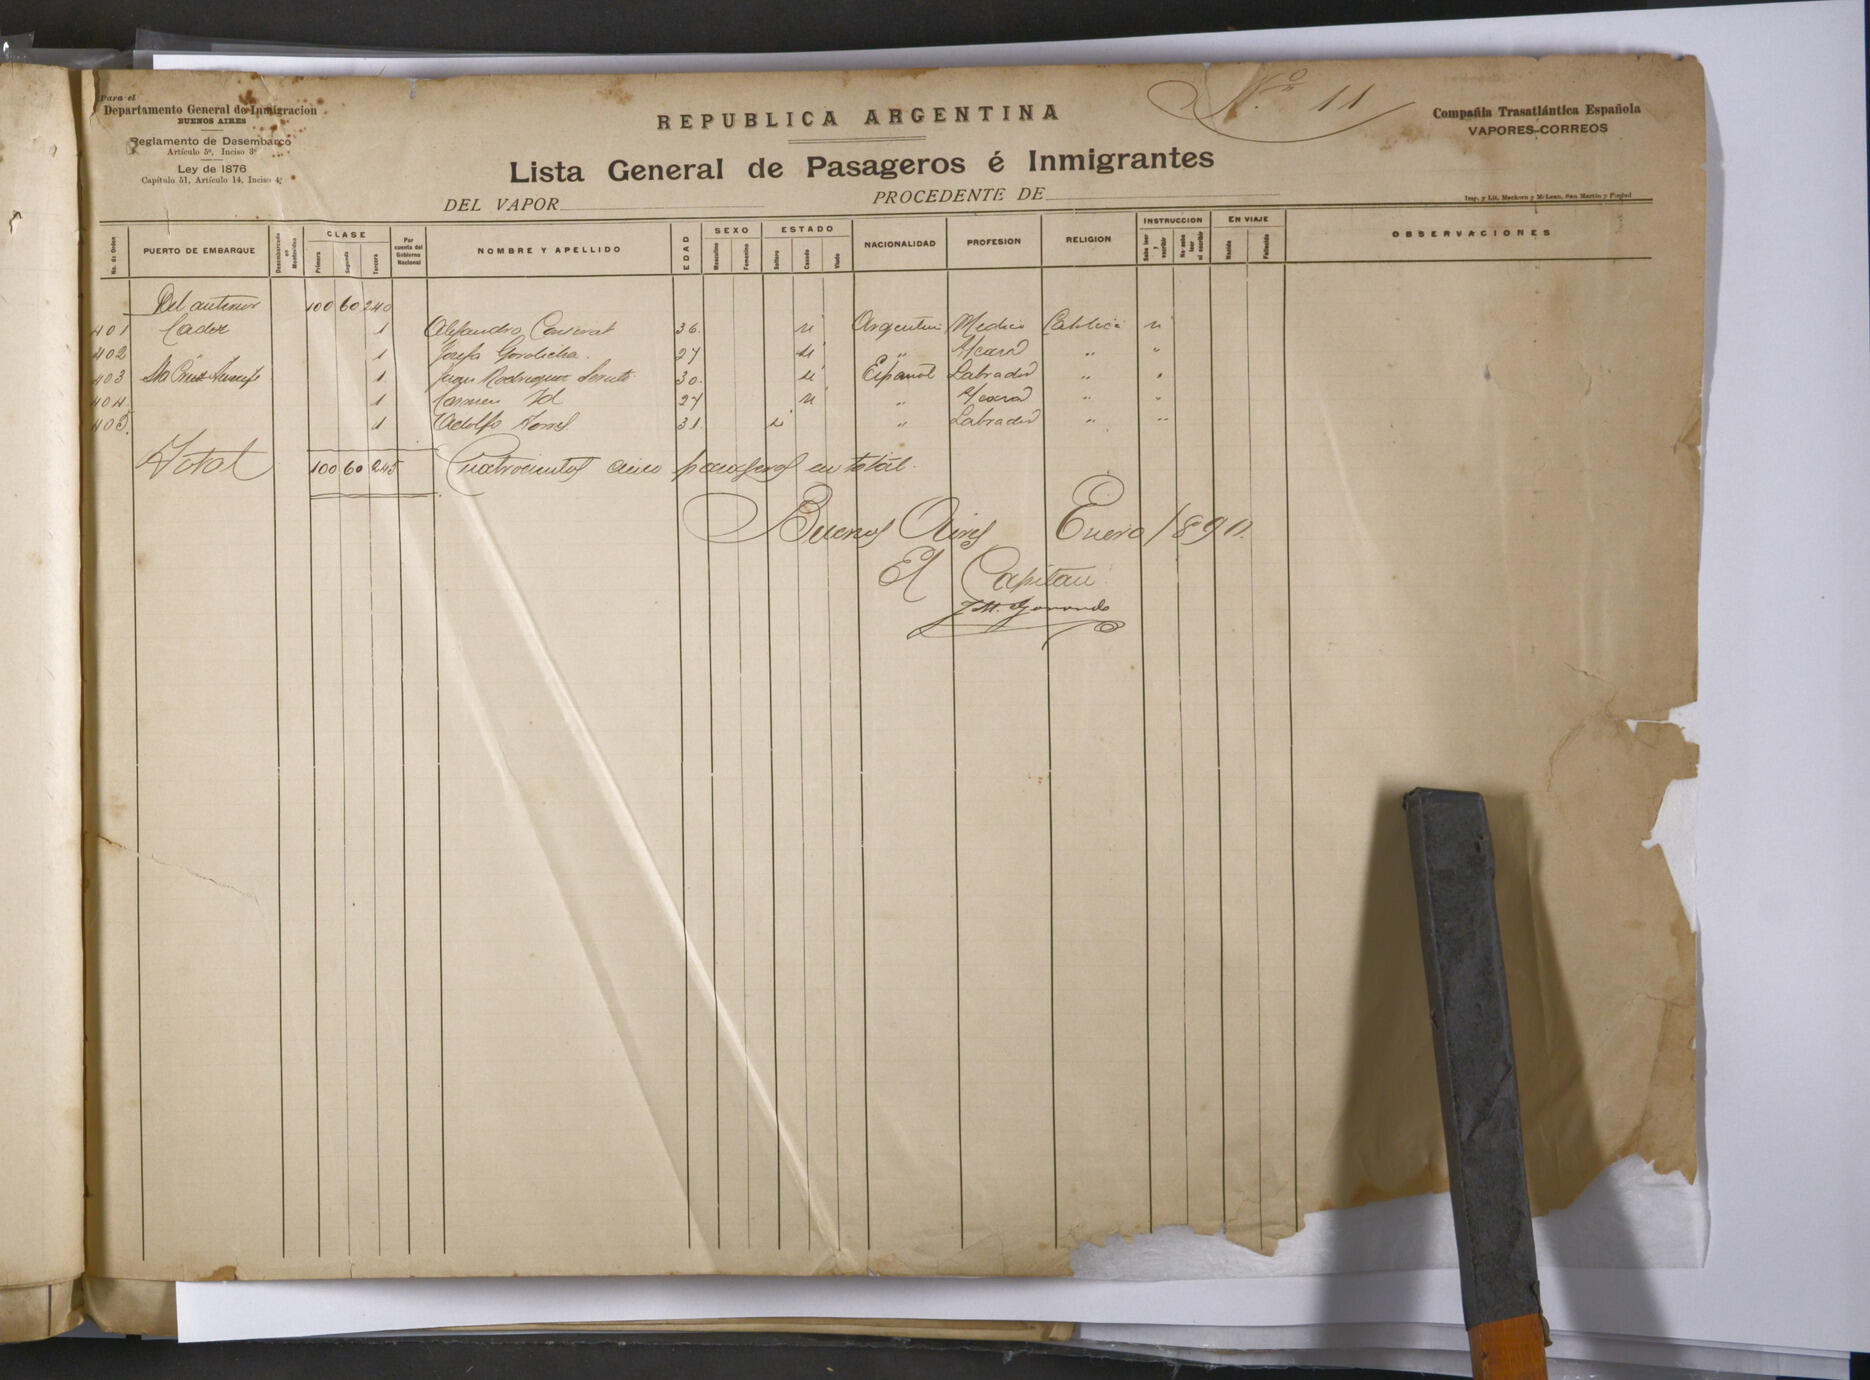 Para el
Departamento General de Inmigracion
BUENOS AIRES
Reglamento de Desembarco
Artículo 5º, Inciso 3º
Ley de 1876
Capítulo 51, Artículo 14, Inciso 4º
REPUBLICA ARGENTINA
Nº 11
Compañía Trasatlántica Española
VAPORES-CORREOS
Lista General de Pasageros é Inmigrantes
DEL VAPOR PROCEDENTE DE
Imp. y Lit. Mackern y McLean, San Martin y Piedad
No. de Orden PUERTO DE EMBARQUE Desembarcado en Montevideo CLASE Primera Segunda Tercera Por cuenta del Gobierno Nacional NOMBRE Y APELLIDO EDAD SEXO Masculino Femenino ESTADO Soltero Casado Viudo NACIONALIDAD PROFESION RELIGION INSTRUCCION Sabe leer y escribir No sabe leer ni escribir EN VIAJE Nacido Fallecido OBSERVACIONES
Del anterior 100 60 240
401 Cadiz 1 Alejandro 36 Argentino Medico Catolica
402 1 Josefa 27 " "  "
403 Sta Cruz Tenerife 1 Juan Rodriguez 30 Español Labrador " "
404 1 Carmen Id 27 " " "
405 1 Adolfo 31 " Labrador " "
Total 100 60 245 Cuatrocientos cinco pasageros en total.
Buenos Aires Enero 1890.
El Capitan